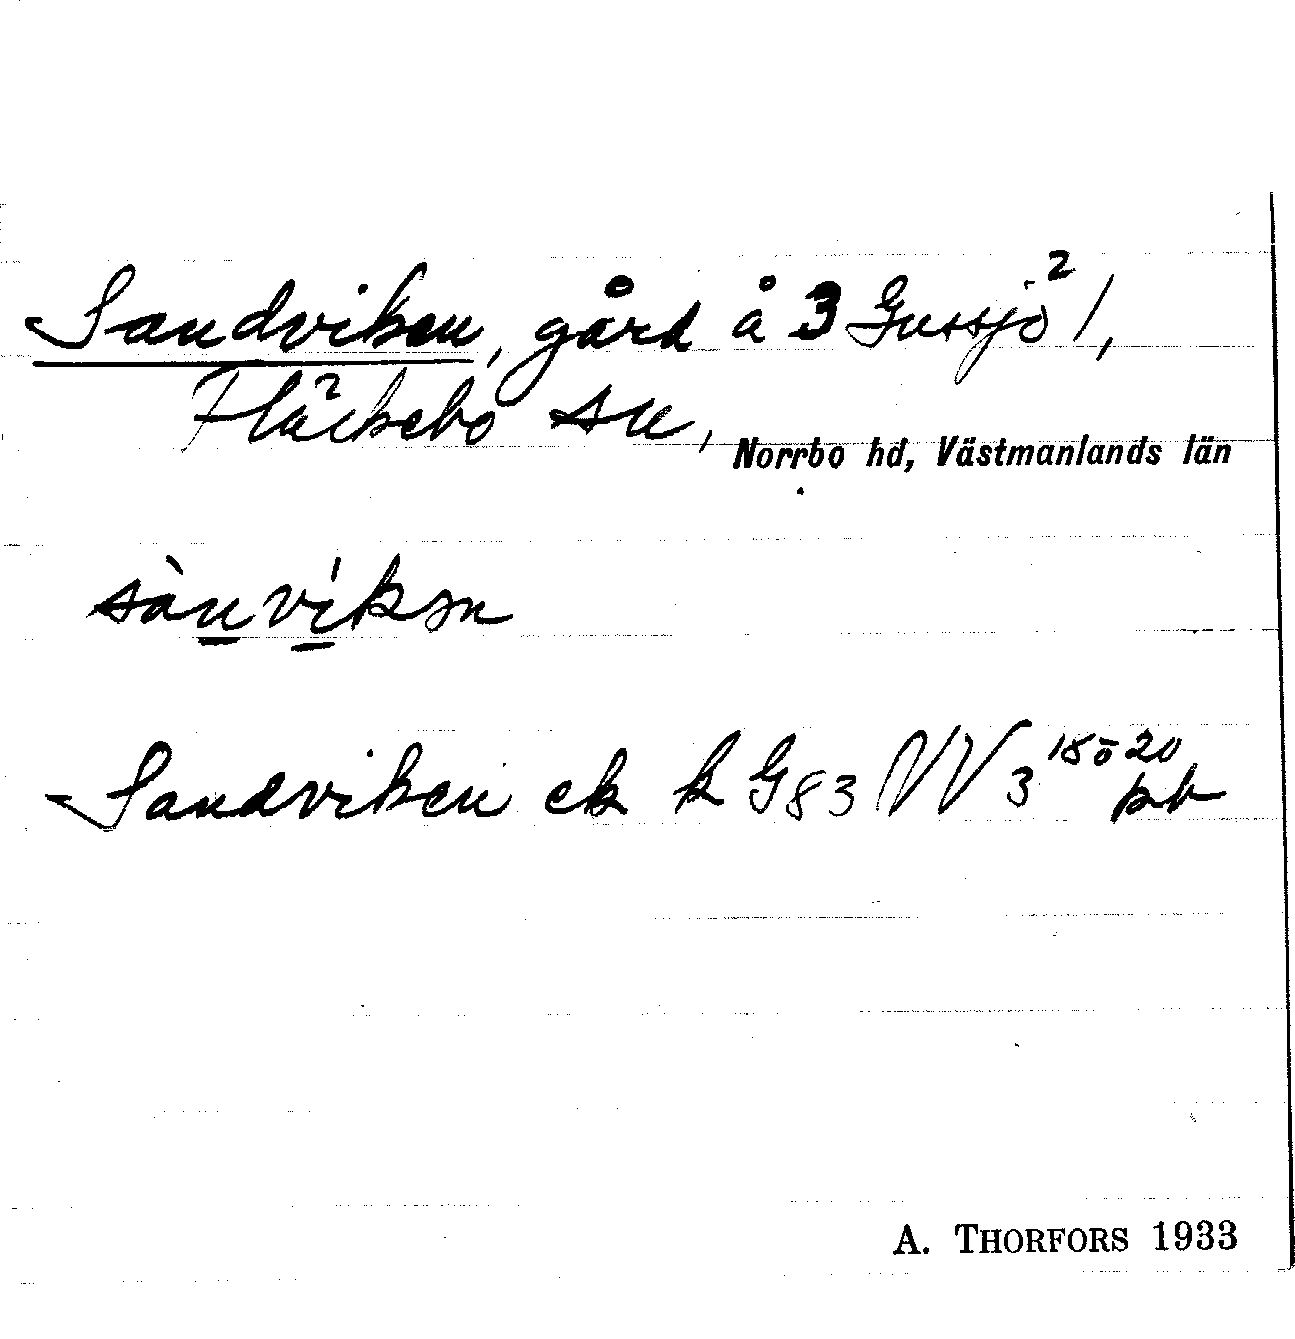 Sandviken, gård å 3 Gussjö 2/1,
Fläckebo sn, Norrbo hd, Västmanlands län
sànvíkən
Sandviken ek k G83 NV3 15 ö 20
A. THORFORS 1933